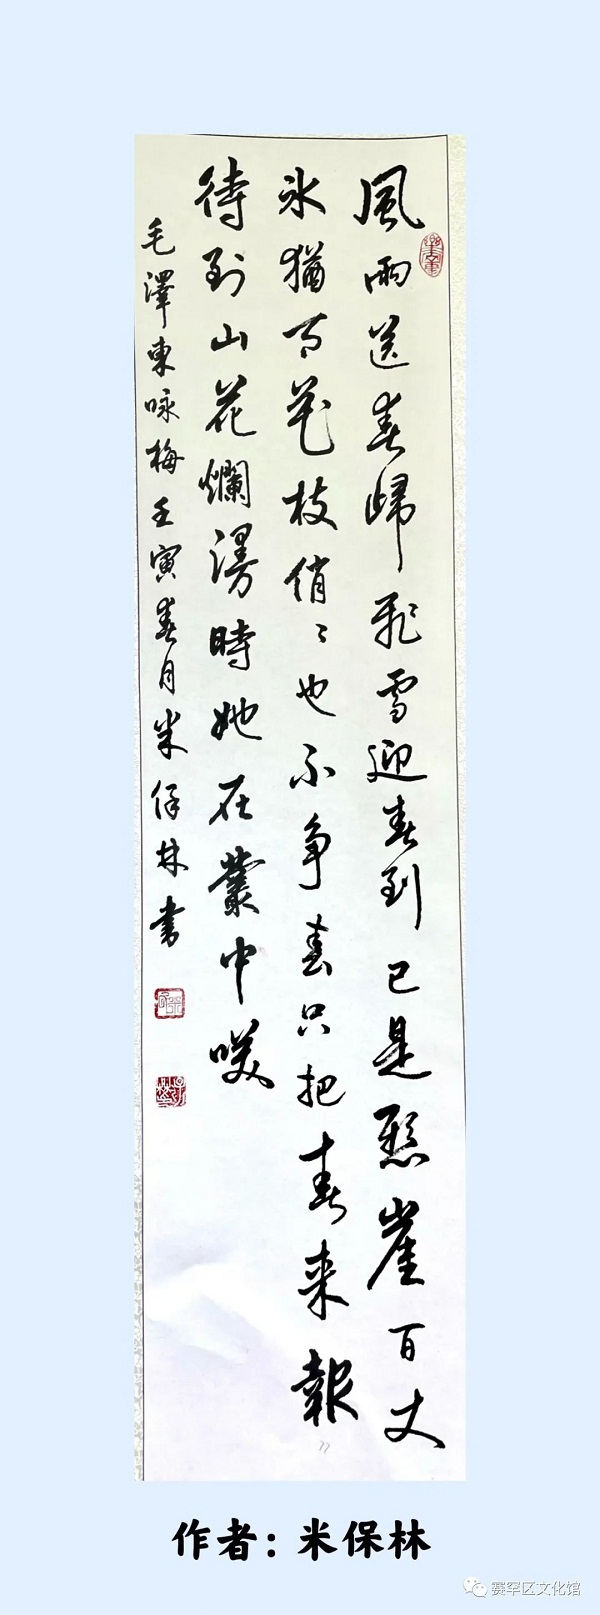 風雨送春歸飛雪迎春到已是懸崖百丈
氷猶有花枝俏〻也不争春只把春来報
待到山花爛漫時她在叢中咲
毛澤東咏梅壬寅春月米保林书
作者：米保林
赛罕区文化馆